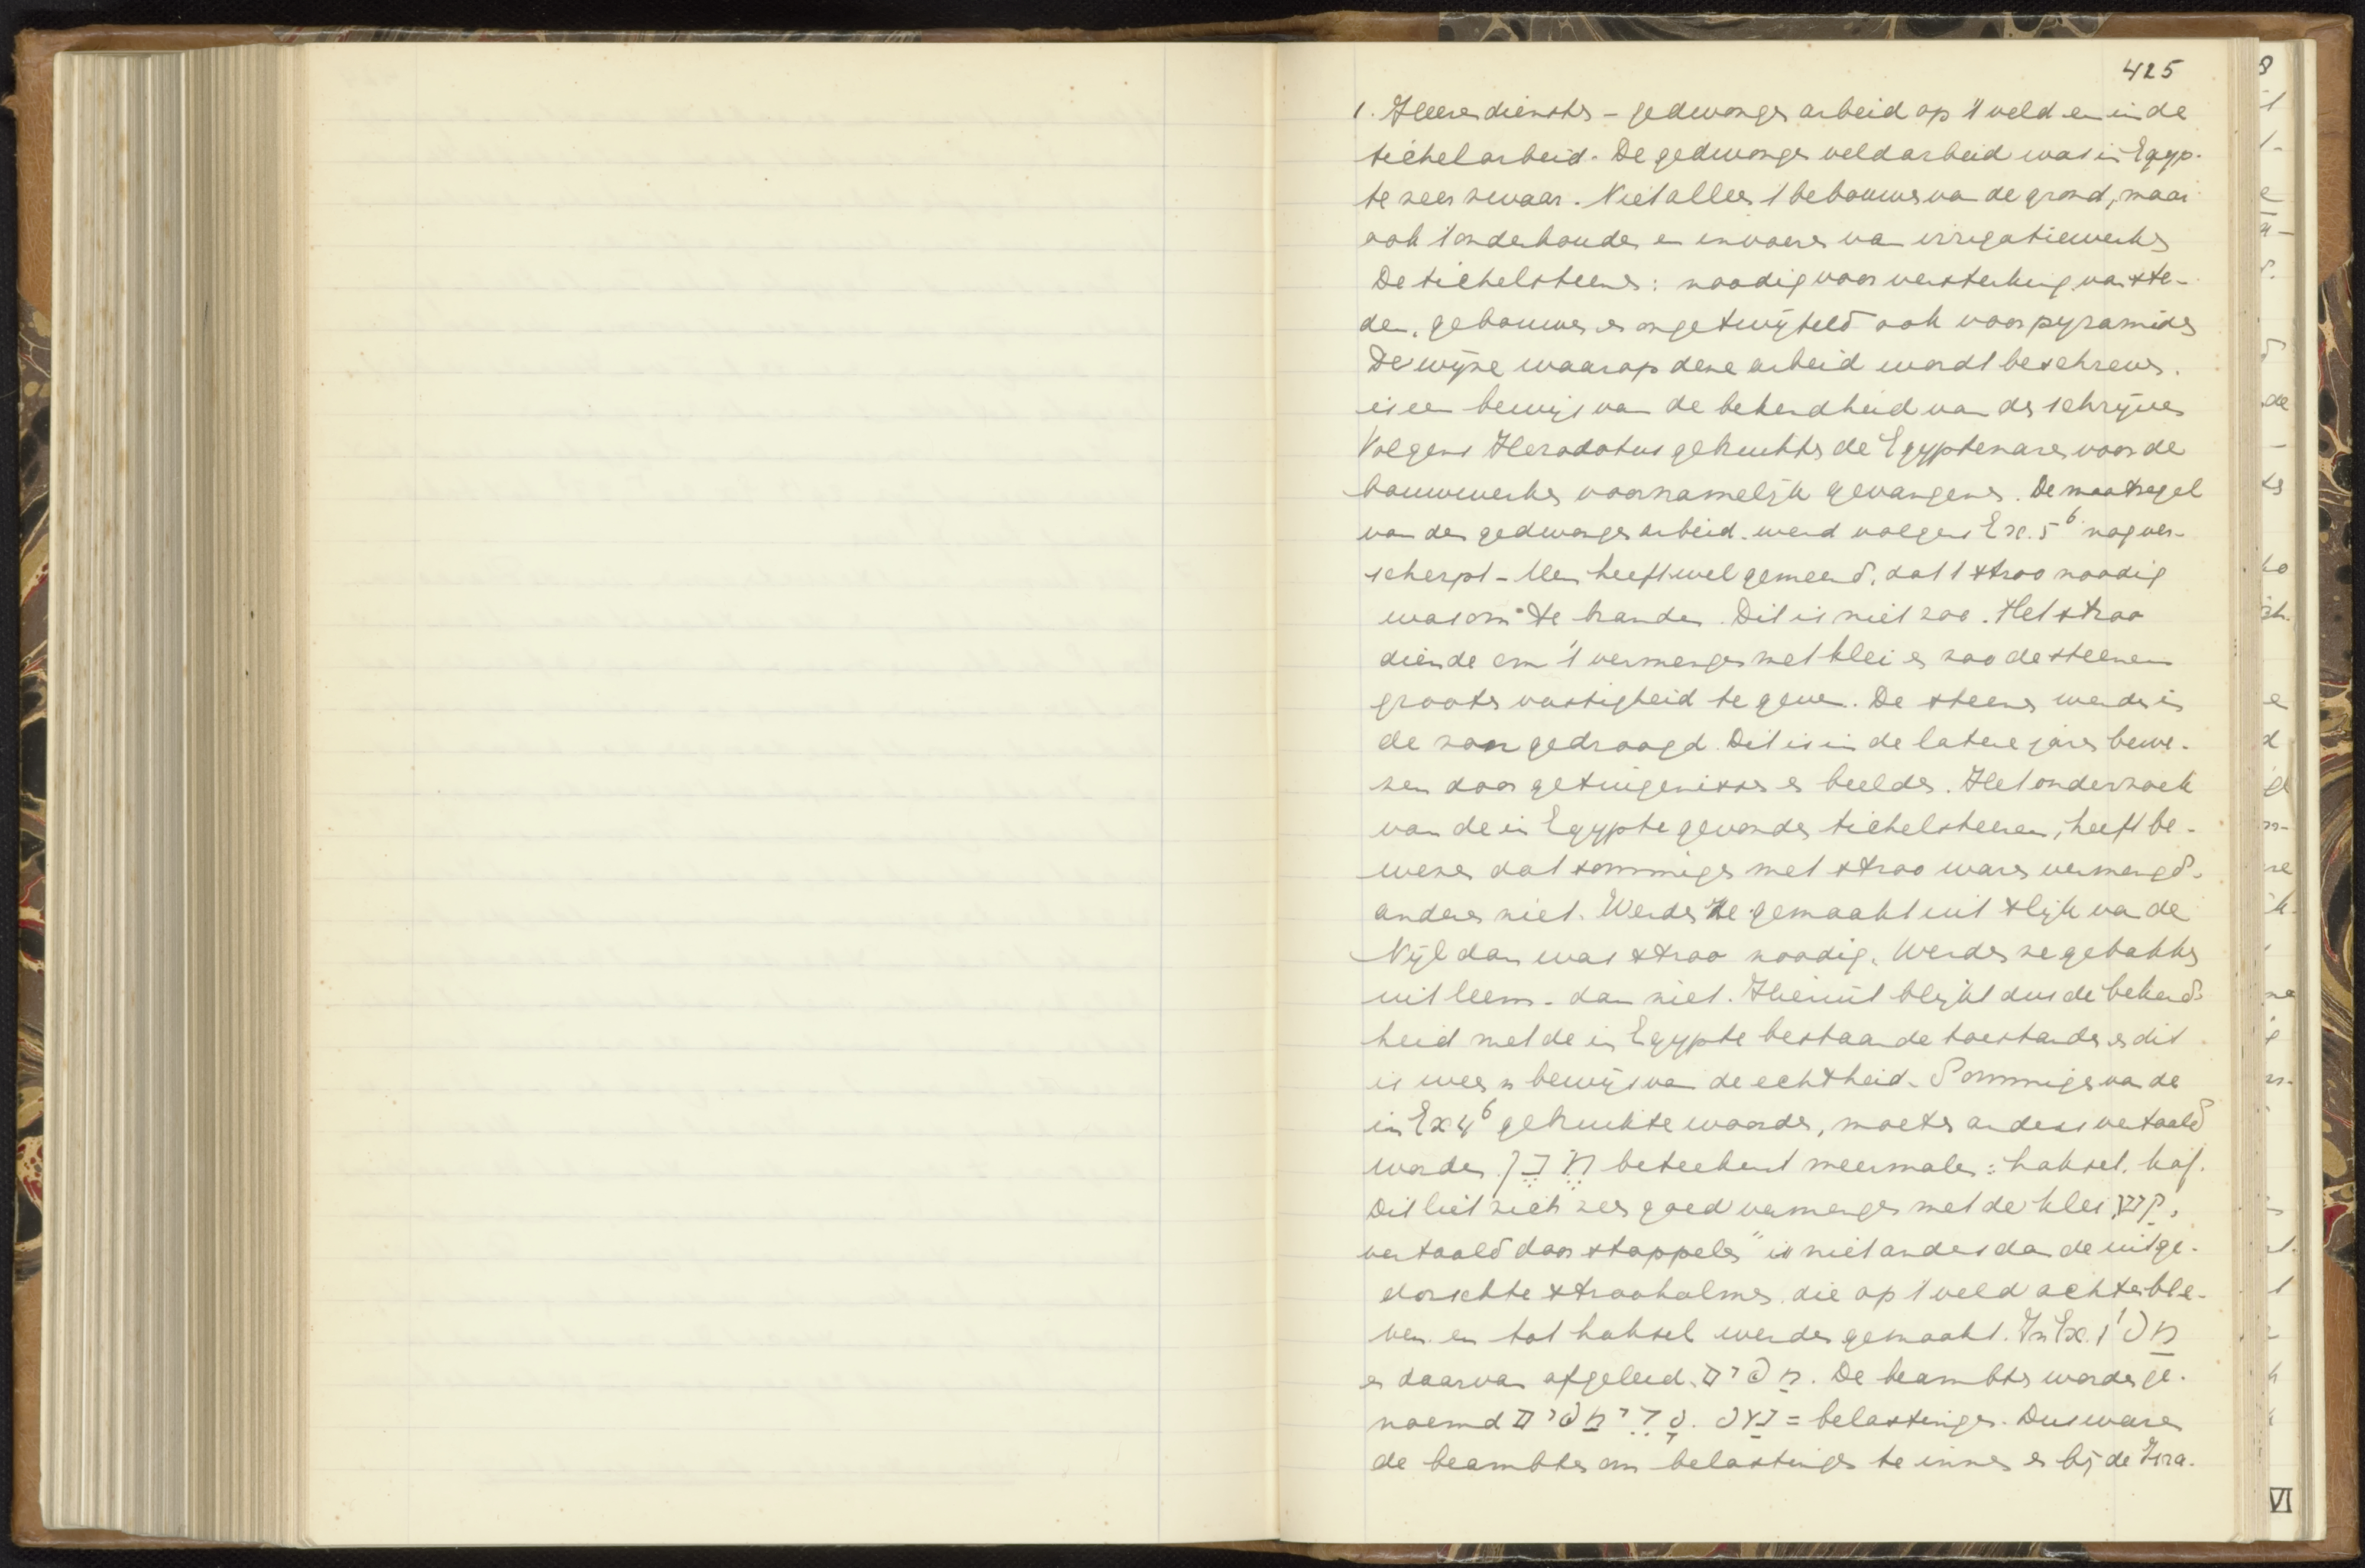 425
1. Heerediensten - gedwongen arbeid op 't veld en in de
tichelarbeid. De gedwongen veldarbeid was in Egyp-
te zeer zwaar. Niet alleen 't bebouwen van de grond, maar
ook 't onderhouden en invoeren van irrigatiewerken
De tichelsteenen: noodig voor versterking van ste-
den, gebouwen en ongetwijfeld ook voor pyramiden
De wijze waarop deze arbeid wordt beschreven.
is een bewijs van de bekendheid van den schrijver
Volgens Herodotus gebruikten de Egyptenaren voor de
bouwwerken voornamelijk gevangenen. De maatregel
van den gedwongen arbeid werd volgens Ex. 5⁶ nog ver-
scherpt - Men heeft wel gemeend, dat 't stroo noodig
was om te branden. Dit is niet zoo. Het stroo
diende om 't vermengen met klei en zoo de steenen
grooter vastigheid te geven. De steenen werden in
de zon gedroogd. Dit is in de latere jaren bewe-
zen door getuigenissen en beelden. Het onderzoek
van de in Egypte gevonden tichelsteenen, heeft be-
wezen dat sommige met stroo waren vermengd.
andere niet. Werden ze gemaakt uit slijk van de
Nijl dan was stroo noodig. Werden ze gebakken
uit leem - dan niet. Hieruit blijkt dus de bekend-
heid met de in Egypte bestaande toestanden en dit
is weer 'n bewijs van de echtheid. Sommige van de
in Ex 4⁶ gebruikte woorden, moeten anders vertaald
worden. תֶּבֶן beteekent meermalen: haksel, kaf.
Dit liet zich zeer goed vermengen met de klei, קַשׁ,
vertaald door stoppelen" is niet anders dan de uitge-
dorschte stroohalmen die op 't veld achterble-
ven en tot haksel werden gemaakt. In Ex. 1¹ מַס
en daarvan afgeleid מַסִּים. De beambten worden ge-
noemd שָׂרֵי מַסִּים. = belastingen. Dus waren
de beambten om belastingen te innen en bij de Isra-
VI